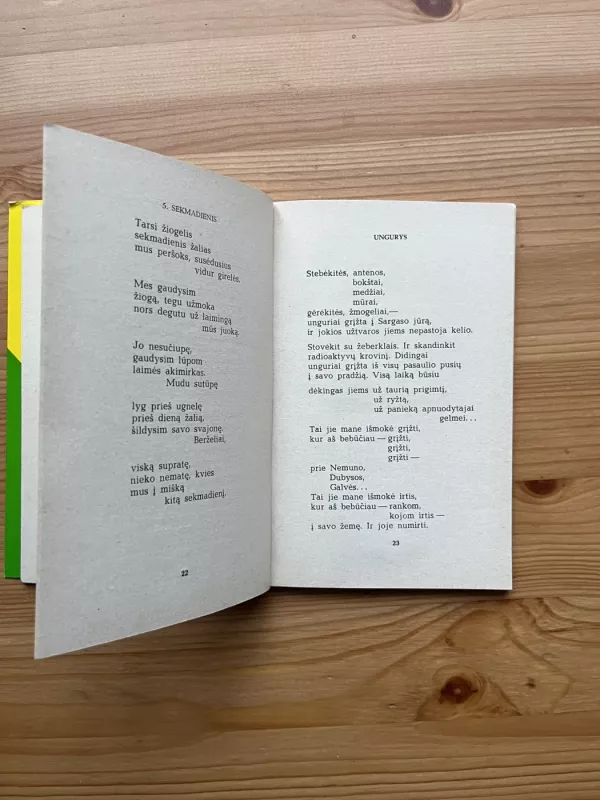 5. SEKMADIENIS
Tarsi žiogelis
sekmadienis žalias
mus peršoks, susėdusius
vidur girelės.
Mes gaudysim
žiogą, tegu užmoka
nors degutu už laimingą
mūs juoką.
Jo nesučiupę,
gaudysim lūpom
laimės akimirkas.
Mudu sutūpę
lyg prieš ugnelę
prieš dieną žalią,
šildysim savo svajonę.
Berželiai,
viską supratę,
nieko nematę, kvies
mus į mišką
kitą sekmadienį.
22
UNGURYS
Stebėkitės, antenos,
bokštai,
medžiai,
mūrai,
gėrėkitės, žmogeliai,—
unguriai grįžta į Sargaso jūrą,
ir jokios užtvaros jiems nepastoja kelio.
Stovėkit su žeberklais. Ir skandinkit
radioaktyvų krovinį. Didingai
unguriai grįžta iš visų pasaulio pusių
į savo pradžią. Visą laiką būsiu
dėkingas jiems už taurią prigimtį,
už ryžtą,
už panieką apnuodytajai
gelmei...
Tai jie mane išmokė grįžti,
kur aš bebūčiau — grįžti,
grįžti,
grįžti —
prie Nemuno,
Dubysos,
Galvės...
Tai jie mane išmokė irtis,
kur aš bebūčiau — rankom,
kojom irtis —
į savo žemę. Ir joje numirti.
23